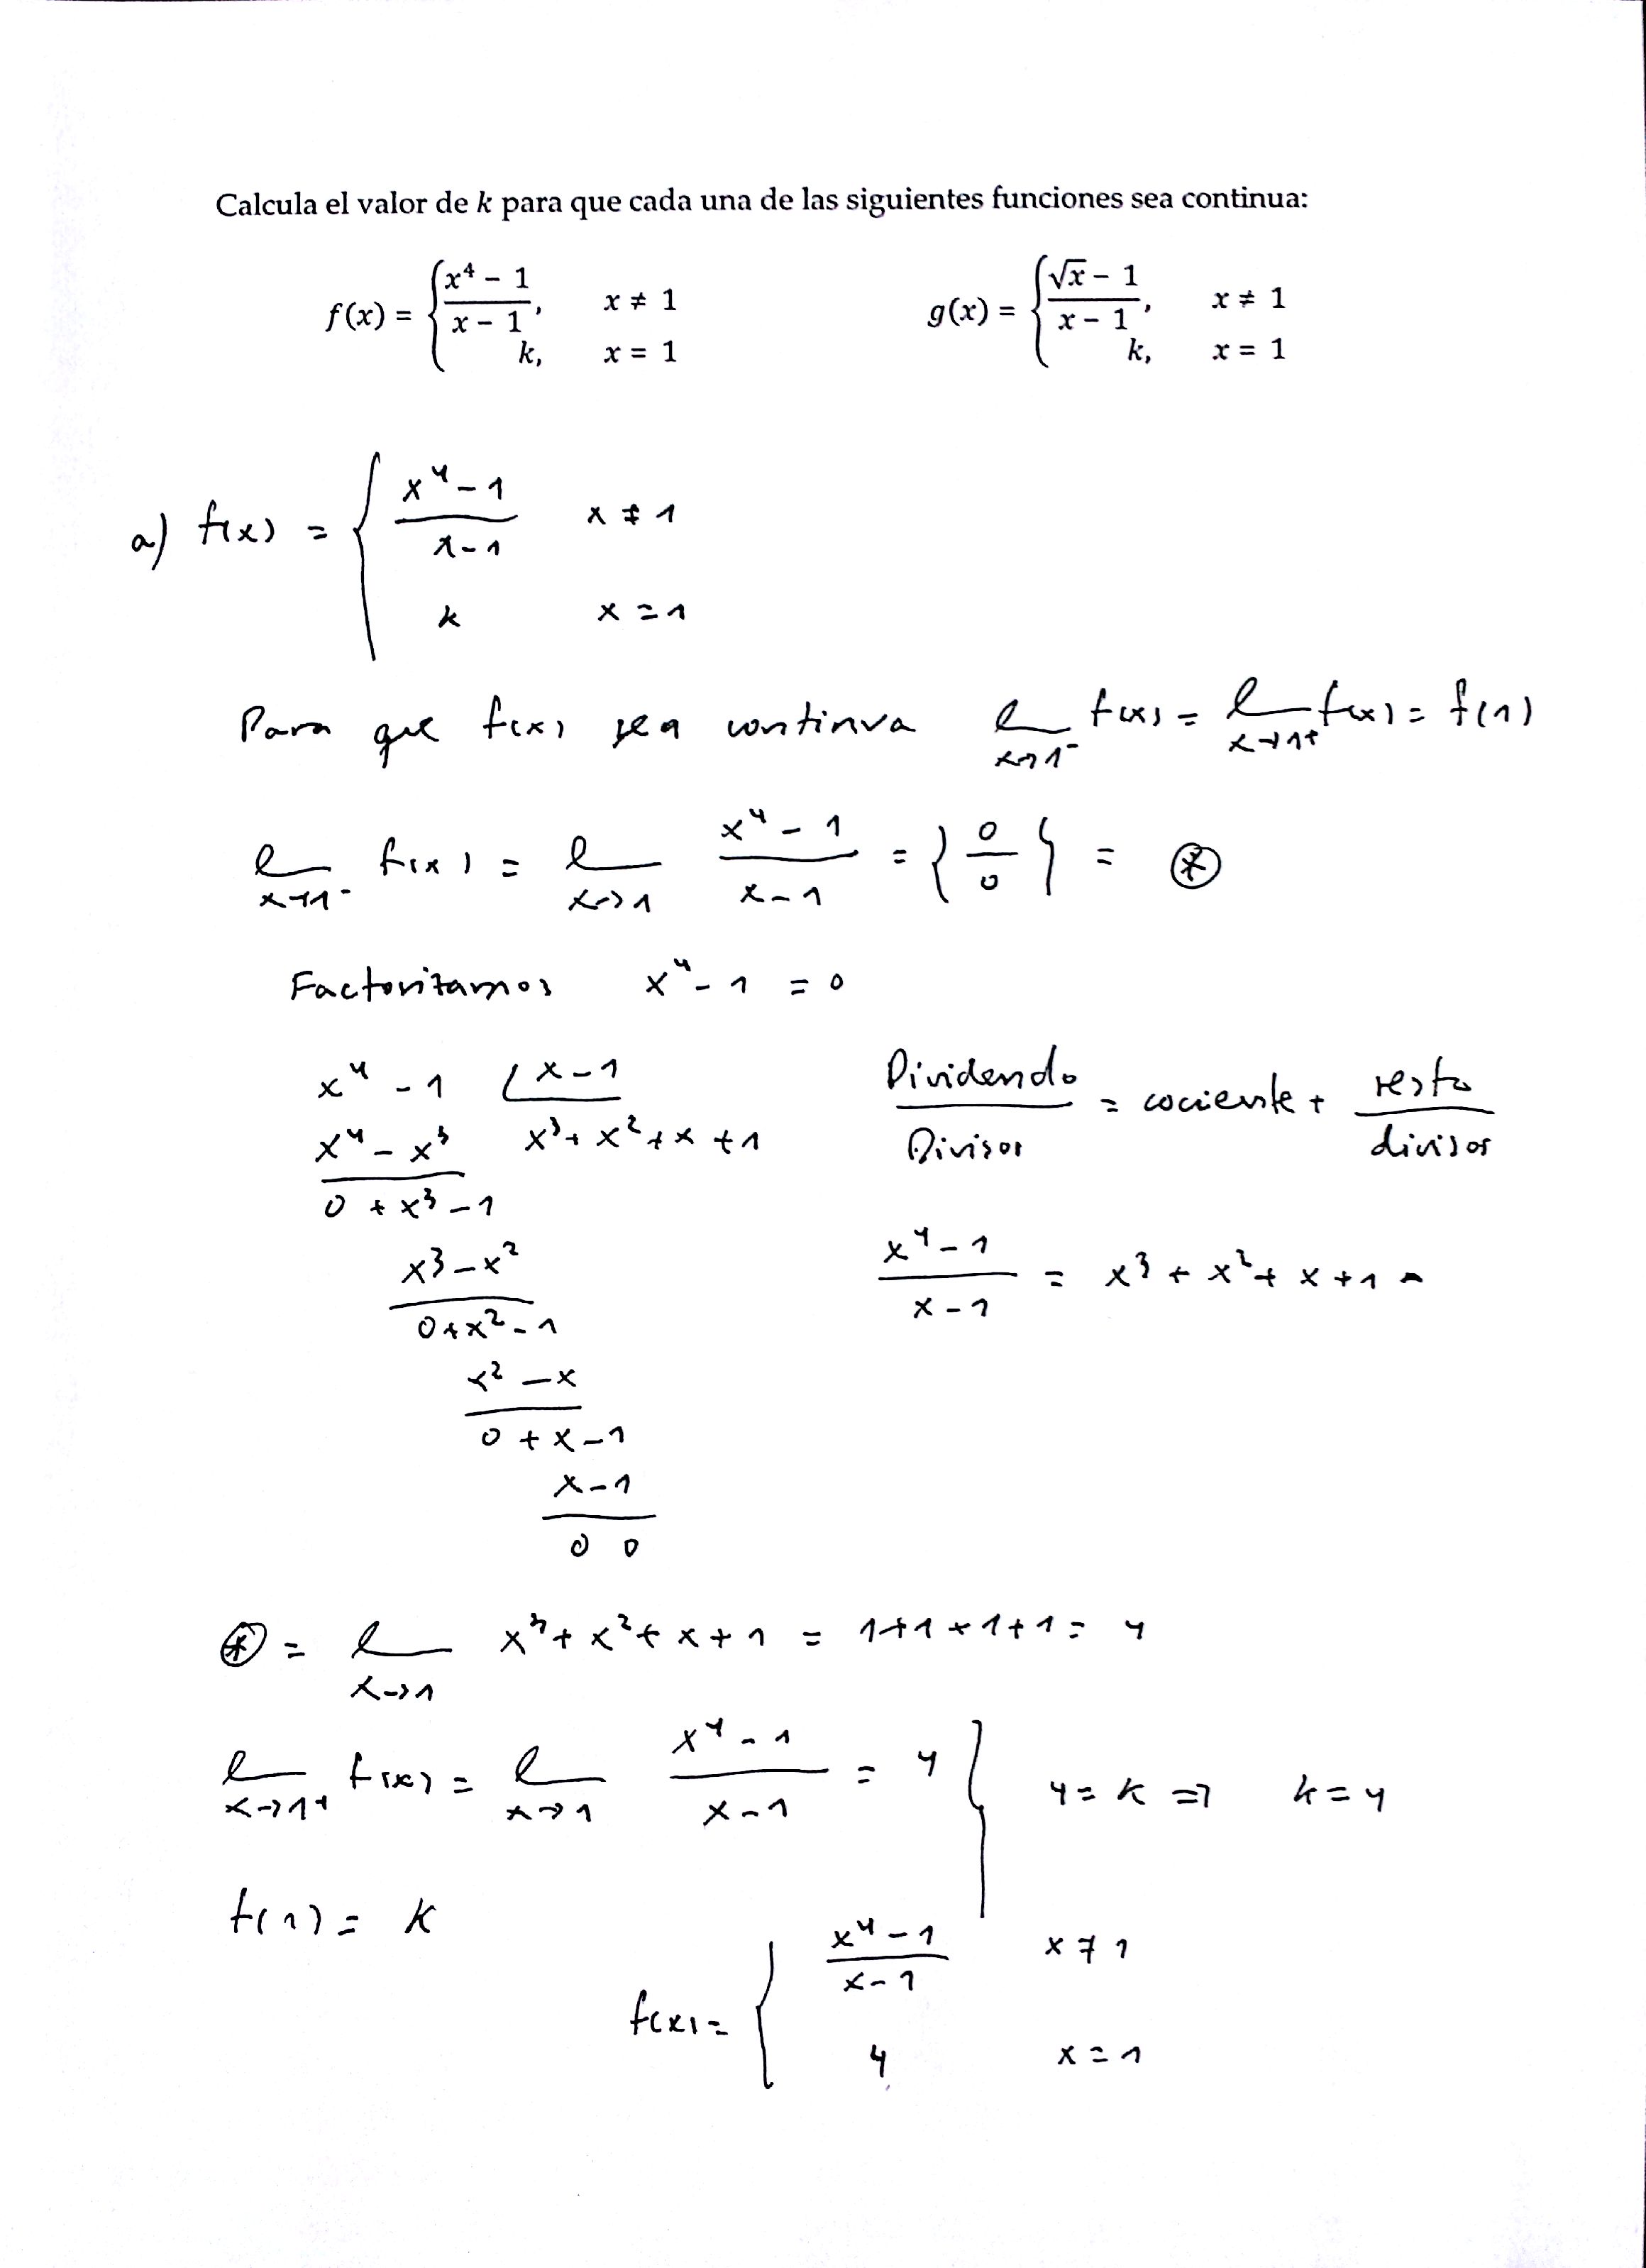 Calcula el valor de k para que cada una de las siguientes funciones sea continua:
f(x) = { (x⁴ − 1)/(x − 1), x ≠ 1
k, x = 1
g(x) = { (√x − 1)/(x − 1), x ≠ 1
k, x = 1
a) f(x) = { (x⁴ − 1)/(x − 1) x ≠ 1
k x = 1
Para que f(x) sea continua lim x→1⁻ f(x) = lim x→1⁺ f(x) = f(1)
lim x→1⁻ f(x) = lim x→1 (x⁴ − 1)/(x − 1) = {0/0} = ⊛
Factorizamos x⁴ − 1 = 0
x⁴ − 1 | x − 1
x⁴ − x³ x³ + x² + x + 1
0 + x³ − 1
x³ − x²
0 + x² − 1
x² − x
0 + x − 1
x − 1
0 0
Dividendo/Divisor = cociente + resto/divisor
(x⁴ − 1)/(x − 1) = x³ + x² + x + 1
⊛ = lim x→1 x³ + x² + x + 1 = 1 + 1 + 1 + 1 = 4
lim x→1⁺ f(x) = lim x→1 (x⁴ − 1)/(x − 1) = 4 } 4 = k ⇒ k = 4
f(1) = k
f(x) = { (x⁴ − 1)/(x − 1) x ≠ 1
4 x = 1